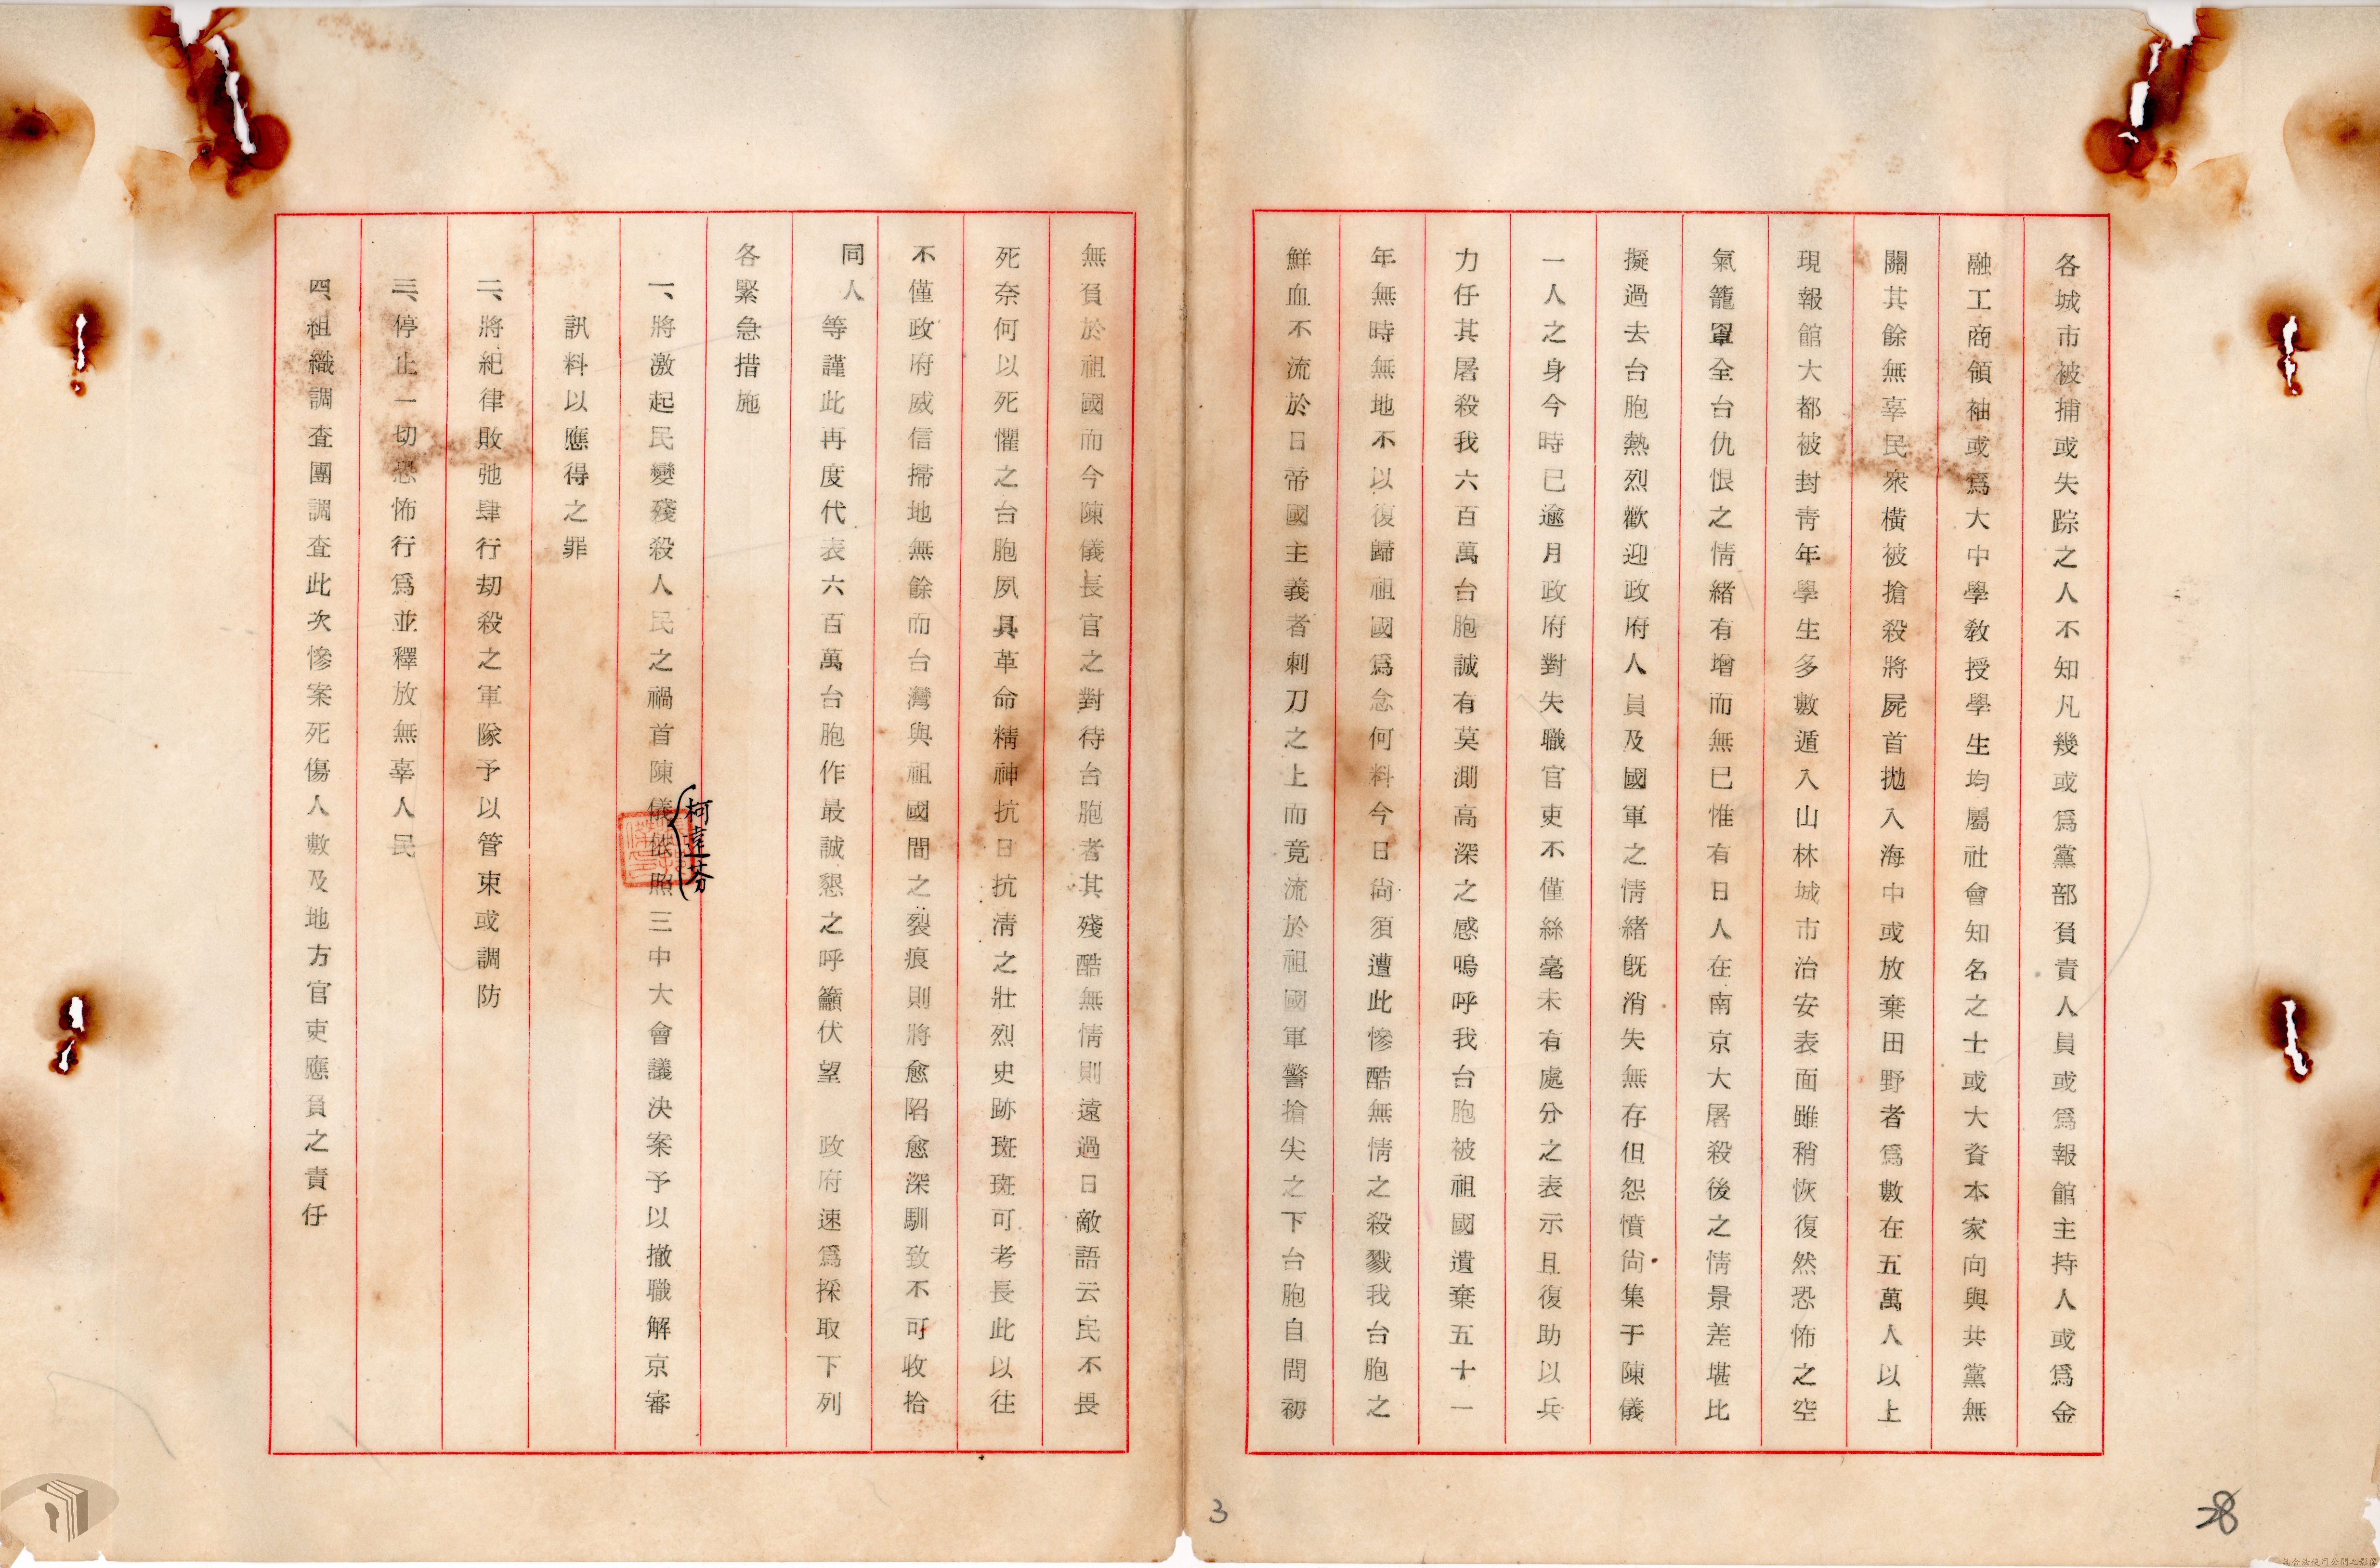 各城市被捕或失踪之人不知凡幾或爲黨部負責人員或爲報館主持人或爲金
融工商領袖或爲大中學敎授學生均屬社會知名之士或大資本家向與共黨無
關其餘無辜民衆橫被搶殺將屍首拋入海中或放棄田野者爲數在五萬人以上
現報館大都被封靑年學生多數遁入山林城市治安表面雖稍恢復然恐怖之空
氣籠罩全台仇恨之情緒有增而無已惟有日人在南京大屠殺後之情景差堪比
擬過去台胞熱烈歡迎政府人員及國軍之情緒旣消失無存但怨憤尙集于陳儀
一人之身今時已逾月政府對失職官吏不僅絲毫未有處分之表示且復助以兵
力仔其屠殺我六百萬台胞誠有莫測高深之感嗚呼我台胞被祖國遺棄五十一
年無時無地不以復歸祖國爲念何料今日尙須遭此慘酷無情之殺戮我台胞之
鮮血不流於日帝國主義者刺刀之上而竟流於祖國軍警搶尖之下台胞自問初
無負於祖國而今陳儀長官之對待台胞者其殘酷無情則遠過日敵語云民不畏
死奈何以死懼之台胞夙具革命精神抗日抗淸之壯烈史跡斑斑可考長此以往
不僅政府威信掃地無餘而台灣與祖國間之裂痕則將愈陷愈深馴致不可收拾
同人等謹此再度代表六百萬台胞作最誠懇之呼籲伏望　政府速爲採取下列
各緊急措施
一、將激起民變殘殺人民之禍首陳儀依照三中大會議決案予以撤職解京審
柯遠芬
訊料以應得之罪
二、將紀律敗弛肆行刧殺之軍隊予以管束或調防
三、停止一切恐怖行爲並釋放無辜人民
四、組織調查團調查此次慘案死傷人數及地方官吏應負之責任
3
28